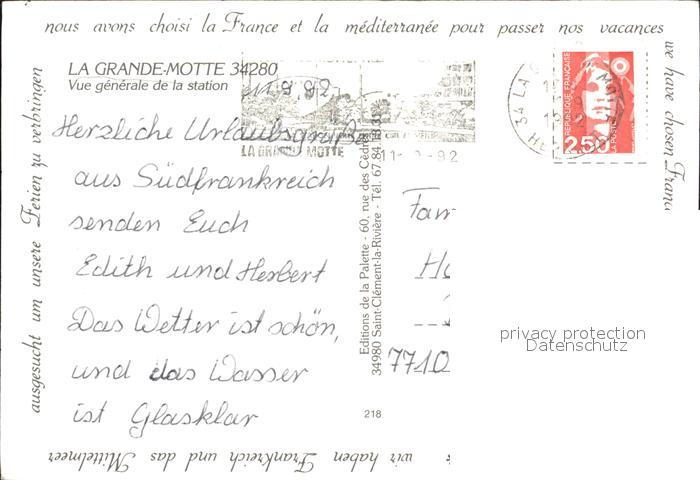 nous avons choisi la France et la méditerranée pour passer nos vacances
we have chosen Franc
LA GRANDE-MOTTE 34280
Vue générale de la station
11.9.92
LA GRANDE MOTTE
11- 9-92
34 LA MOTTE
REPUBLIQUE FRANÇAISE
LA POSTE
2,50
Herzliche Urlaubsgrüße
aus Südfrankreich
senden Euch
Edith und Herbert
Das Wetter ist schön,
und das Wasser
ist Glasklar
Editions de la Palette - 60, rue des Cèdres
34980 Saint-Clément-la-Rivière - Tél. 67.84
218
Fam
7710
privacy protection
Datenschutz
wir haben Frankreich und das Mittelmeer
ausgesucht um unsere Ferien zu verbringen